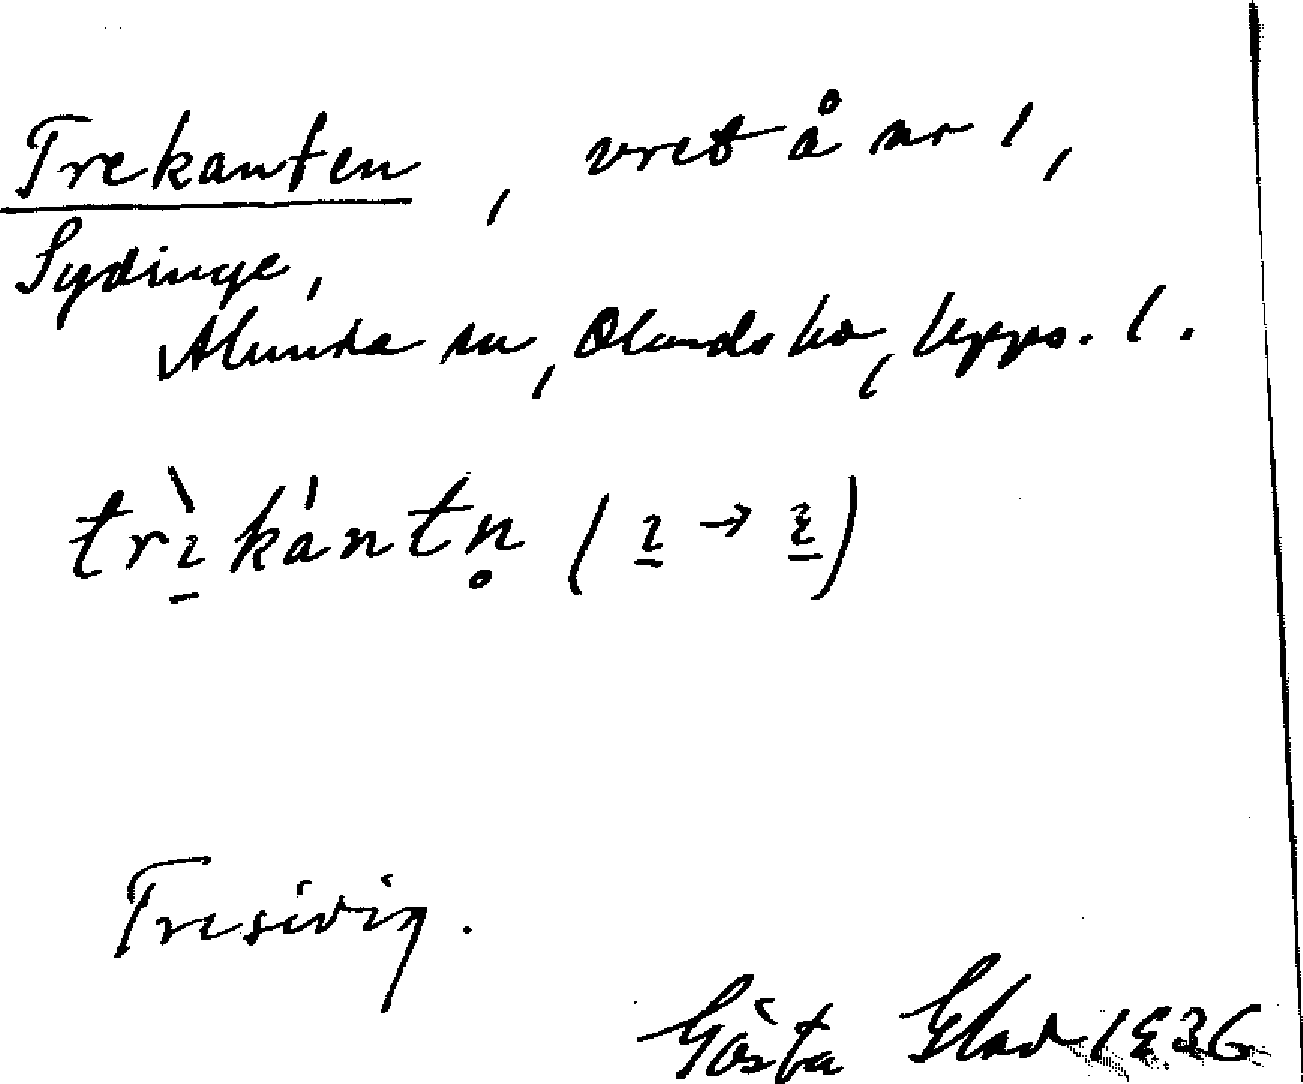 Trekanten, vret å nr 1,
Sydinge,
Alunda sn, Olands hd, Upps. l.
trì̱kántn̥ (ɩ̱ → 
Tresidig.
Gösta Elov 1936